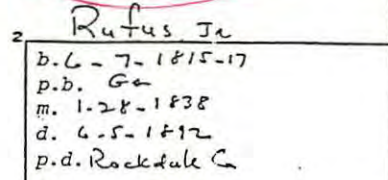 Rufus Jr
2
b. 6 - 7 - 1815-17
p.b. Ga
m. 1-28-1838
d. 6-5-1892
p.d. Rockdale Co